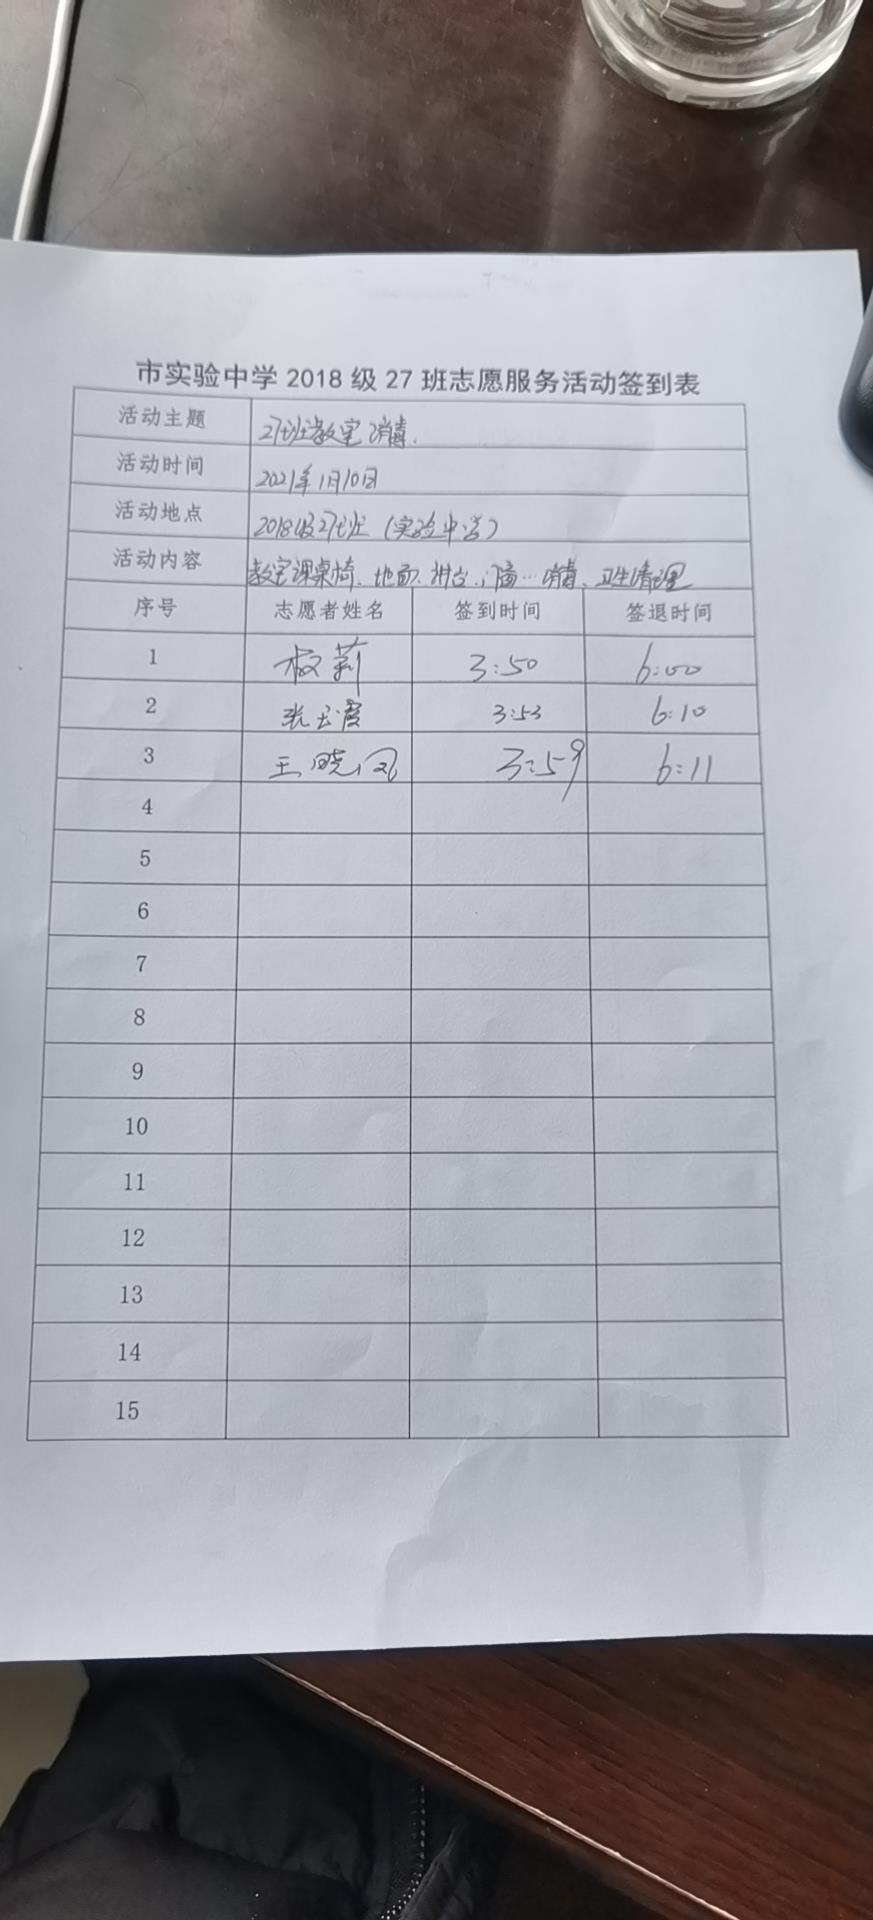 市实验中学2018级27班志愿服务活动签到表
活动主题 27班教室消毒.
活动时间 2021年1月10日
活动地点 2018级27班(实验中学)
活动内容 教室课桌椅、地面、讲台、门窗…消毒、卫生清理
序号 志愿者姓名 签到时间 签退时间
1 莉 3:50 6:00
2 张玉霞 3:53 6:10
3 王晓凤 3:59 6:11
4
5
6
7
8
9
10
11
12
13
14
15